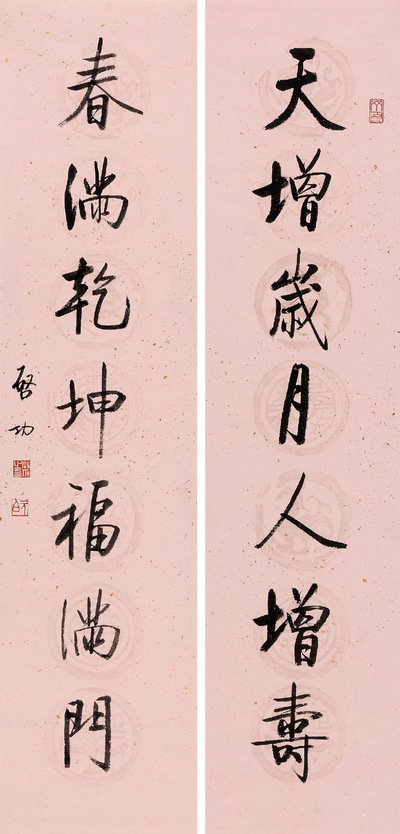 天增歲月人增壽
春滿乾坤福滿門
啓功